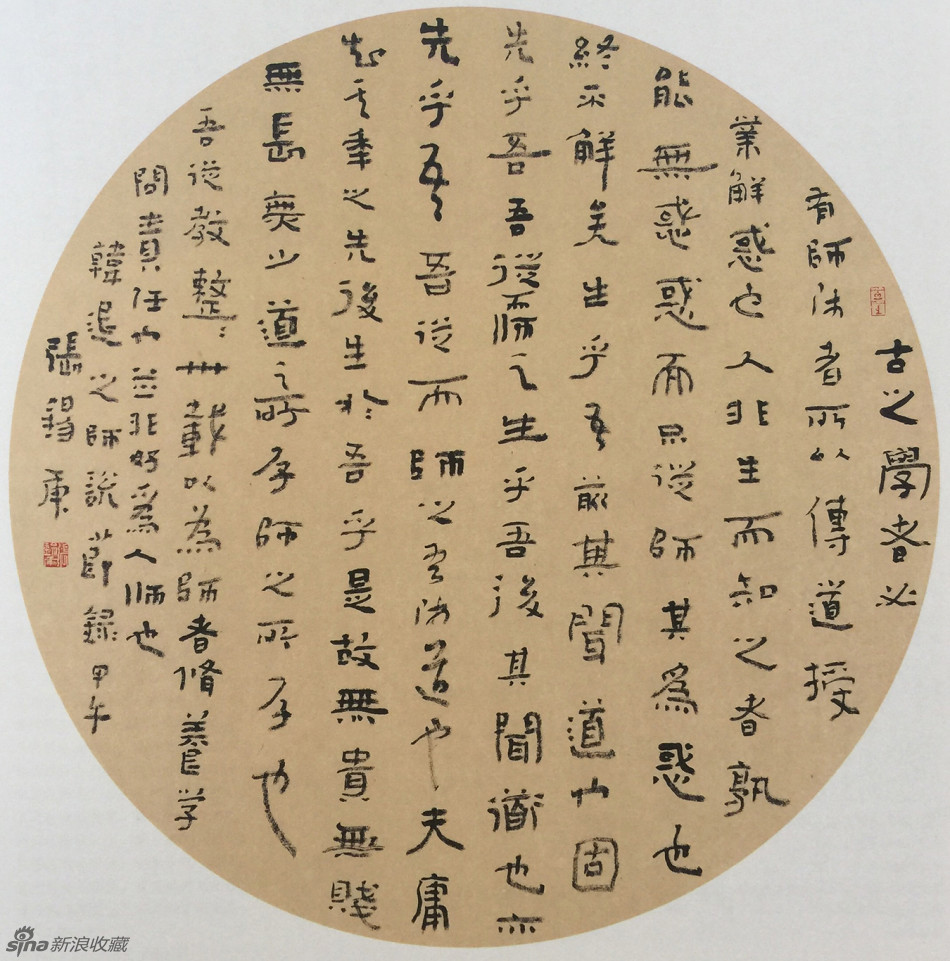 古之學者必
有師师者所以傳道授
業解惑也人非生而知之者孰
能無惑惑而不從師其為惑也
終不解矣生乎吾前其聞道也固
先乎吾吾從而师之生乎吾後其聞道也亦
先乎吾吾從而師之吾师道也夫庸
知其年之先後生於吾乎是故無貴無賤
無長無少道之所存師之所存也
吾從教整整卅載以為師者脩養学
問責任也並非好為人师也
韓退之師說節録甲午
張錫庚
sina新浪收藏